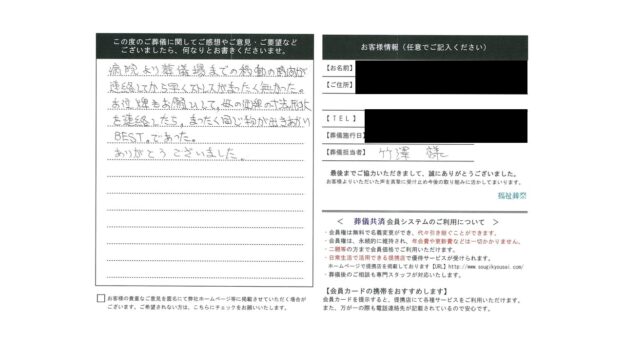 この度のご葬儀に関してご感想やご意見・ご要望など
ございましたら、何なりとお書きくださいませ。
病院より葬儀場までの移動の時間が
連絡してから早くストレスがまったく無かった。
お位牌もお願いして、母の位牌の寸法形状
を連絡したら、まったく同じ物が出きあがり
BEST。であった。
ありがとうございました。
お客様の貴重なご意見を匿名にて弊社ホームページ等に掲載させていただく場合が
ございます。ご希望されない方は、こちらにチェックをお願いいたします。
お客様情報（任意でご記入ください）
【お名前】
【ご住所】
【TEL】
【葬儀施行日】
【葬儀担当者】 竹澤 様
最後までご協力いただきまして、誠にありがとうございました。
お客様よりいただいた声を真摯に受け止め今後の取り組みに活かしてまいります。
福祉葬祭
＜ 葬儀共済 会員システムのご利用について ＞
・会員権は無料で名義変更ができ、代々引き継ぐことができます。
・会員権は、永続的に維持され、年会費や更新費などは一切かかりません。
・二親等の方まで会員価格でご利用いただけます。
・日常生活で活用できる提携店で優待サービスが受けられます。
ホームページで提携店を掲載しております【URL】http://www.sougikyousai.com/
・葬儀後のご相談も専門スタッフが対応いたします。
【会員カードの携帯をおすすめします】
会員カードを提示すると、提携店にて各種サービスをご利用いただけます。
また、万が一の際も電話連絡先が記載されているので安心です。